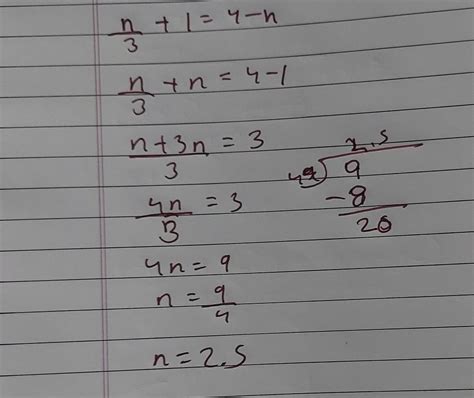 n/3 + 1 = 4-n
n/3 + n = 4-1
n+3n/3 = 3
4n/3 = 3
4n = 9
n = 9/4
n = 2.5
2.5
4 9
-8
20